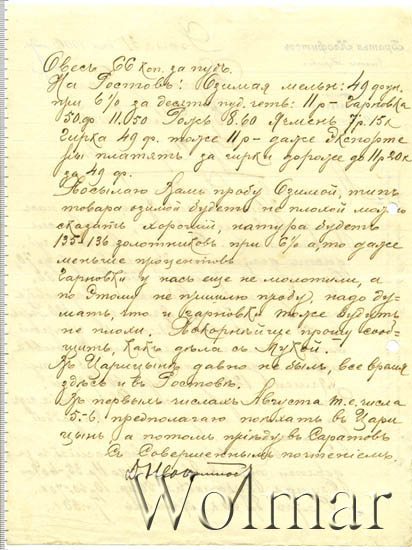 Овесъ 66 коп. за пудъ.
На Ростовъ: Озимая мельн: 49 фун.
при 6% за десять пуд. четь: 11 р - Гарновка
50 ф. 11.050 Рожь 8.60 Ячмень 7 р. 15 к
Гирка 49 ф. тоже 11 р - даже Экспорте
ры платятъ за гирки дороже до 11 р 20 к
за 49 ф.
Посылаю Вамъ пробу Озимой, типъ
товара озимой будетъ не плохой можно
сказать хорошій, натура будетъ
135-136 золотниковъ при 6% а то даже
меньше процентовъ
Гарновки у насъ еще не молотили, а
по этому не пришлю пробу, надо ду-
мать, что и гарновки тоже будетъ
не плохи. Покорнѣйше прошу сооб-
щить, какъ дѣла съ Мукой.
Въ Царицынѣ давно не былъ, все время
здѣсь и въ Ростовѣ.
Въ первыхъ числахъ Августа т. е. числа
5-6. предполагаю поѣхать въ Цари
цынъ а потомъ пріѣду въ Саратовъ
Съ Совершеннымъ почтеніемъ
Wolmar